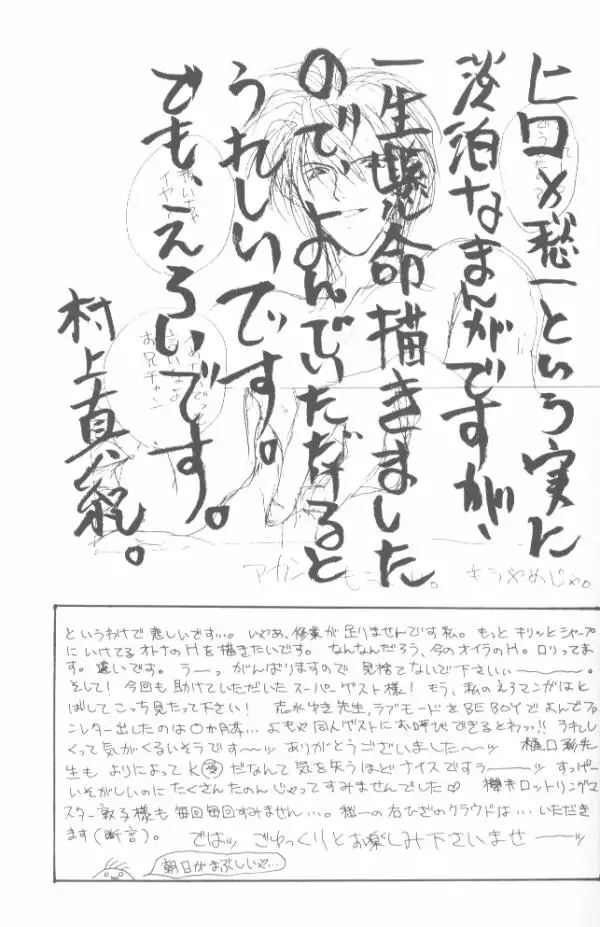 ヒロ×愁一という実に
淡泊なまんがですが、
一生懸命描きました
ので、よんでいただけると
うれしいです。
でも、えろいです。
村上真紀。
お兄チャン
というわけで悲しいです…。いやあ、修業が足りませんです私。もっとキリッとシャープ
にいけてるオトナのHを描きたいです。なんなんだろう、今のオイラのH。ロリってま
す。遠いです。うーっがんばりますので見捨てないで下さいぃーーー。
そして!今回も助けていただいたスーパーゲスト様!もう、私のえろマンガはと
ばしてこっち見たって下さい!志水ゆき先生、ラブモードをBE BOYでよんでファ
ンレター出したのは〇か月前…よもや同人ゲストにお呼びできるとわっ!!うれし
くって気がくるいそうです〜〜ッありがとうございました〜ッ 樋口 先
生もよりによってK受だなんて気を失うほどナイスですぅーーーッすっげー
いそがしいのにたくさんたのんじゃってすみませんでした♡ ロットリングマ
スター敦子様も毎回毎回すみません…。愁一の右ひざのクラウドは…いただき
ます(断言)。ではッごゆっくりとお楽しみ下さいませーーッ
朝日がまぶしいや…